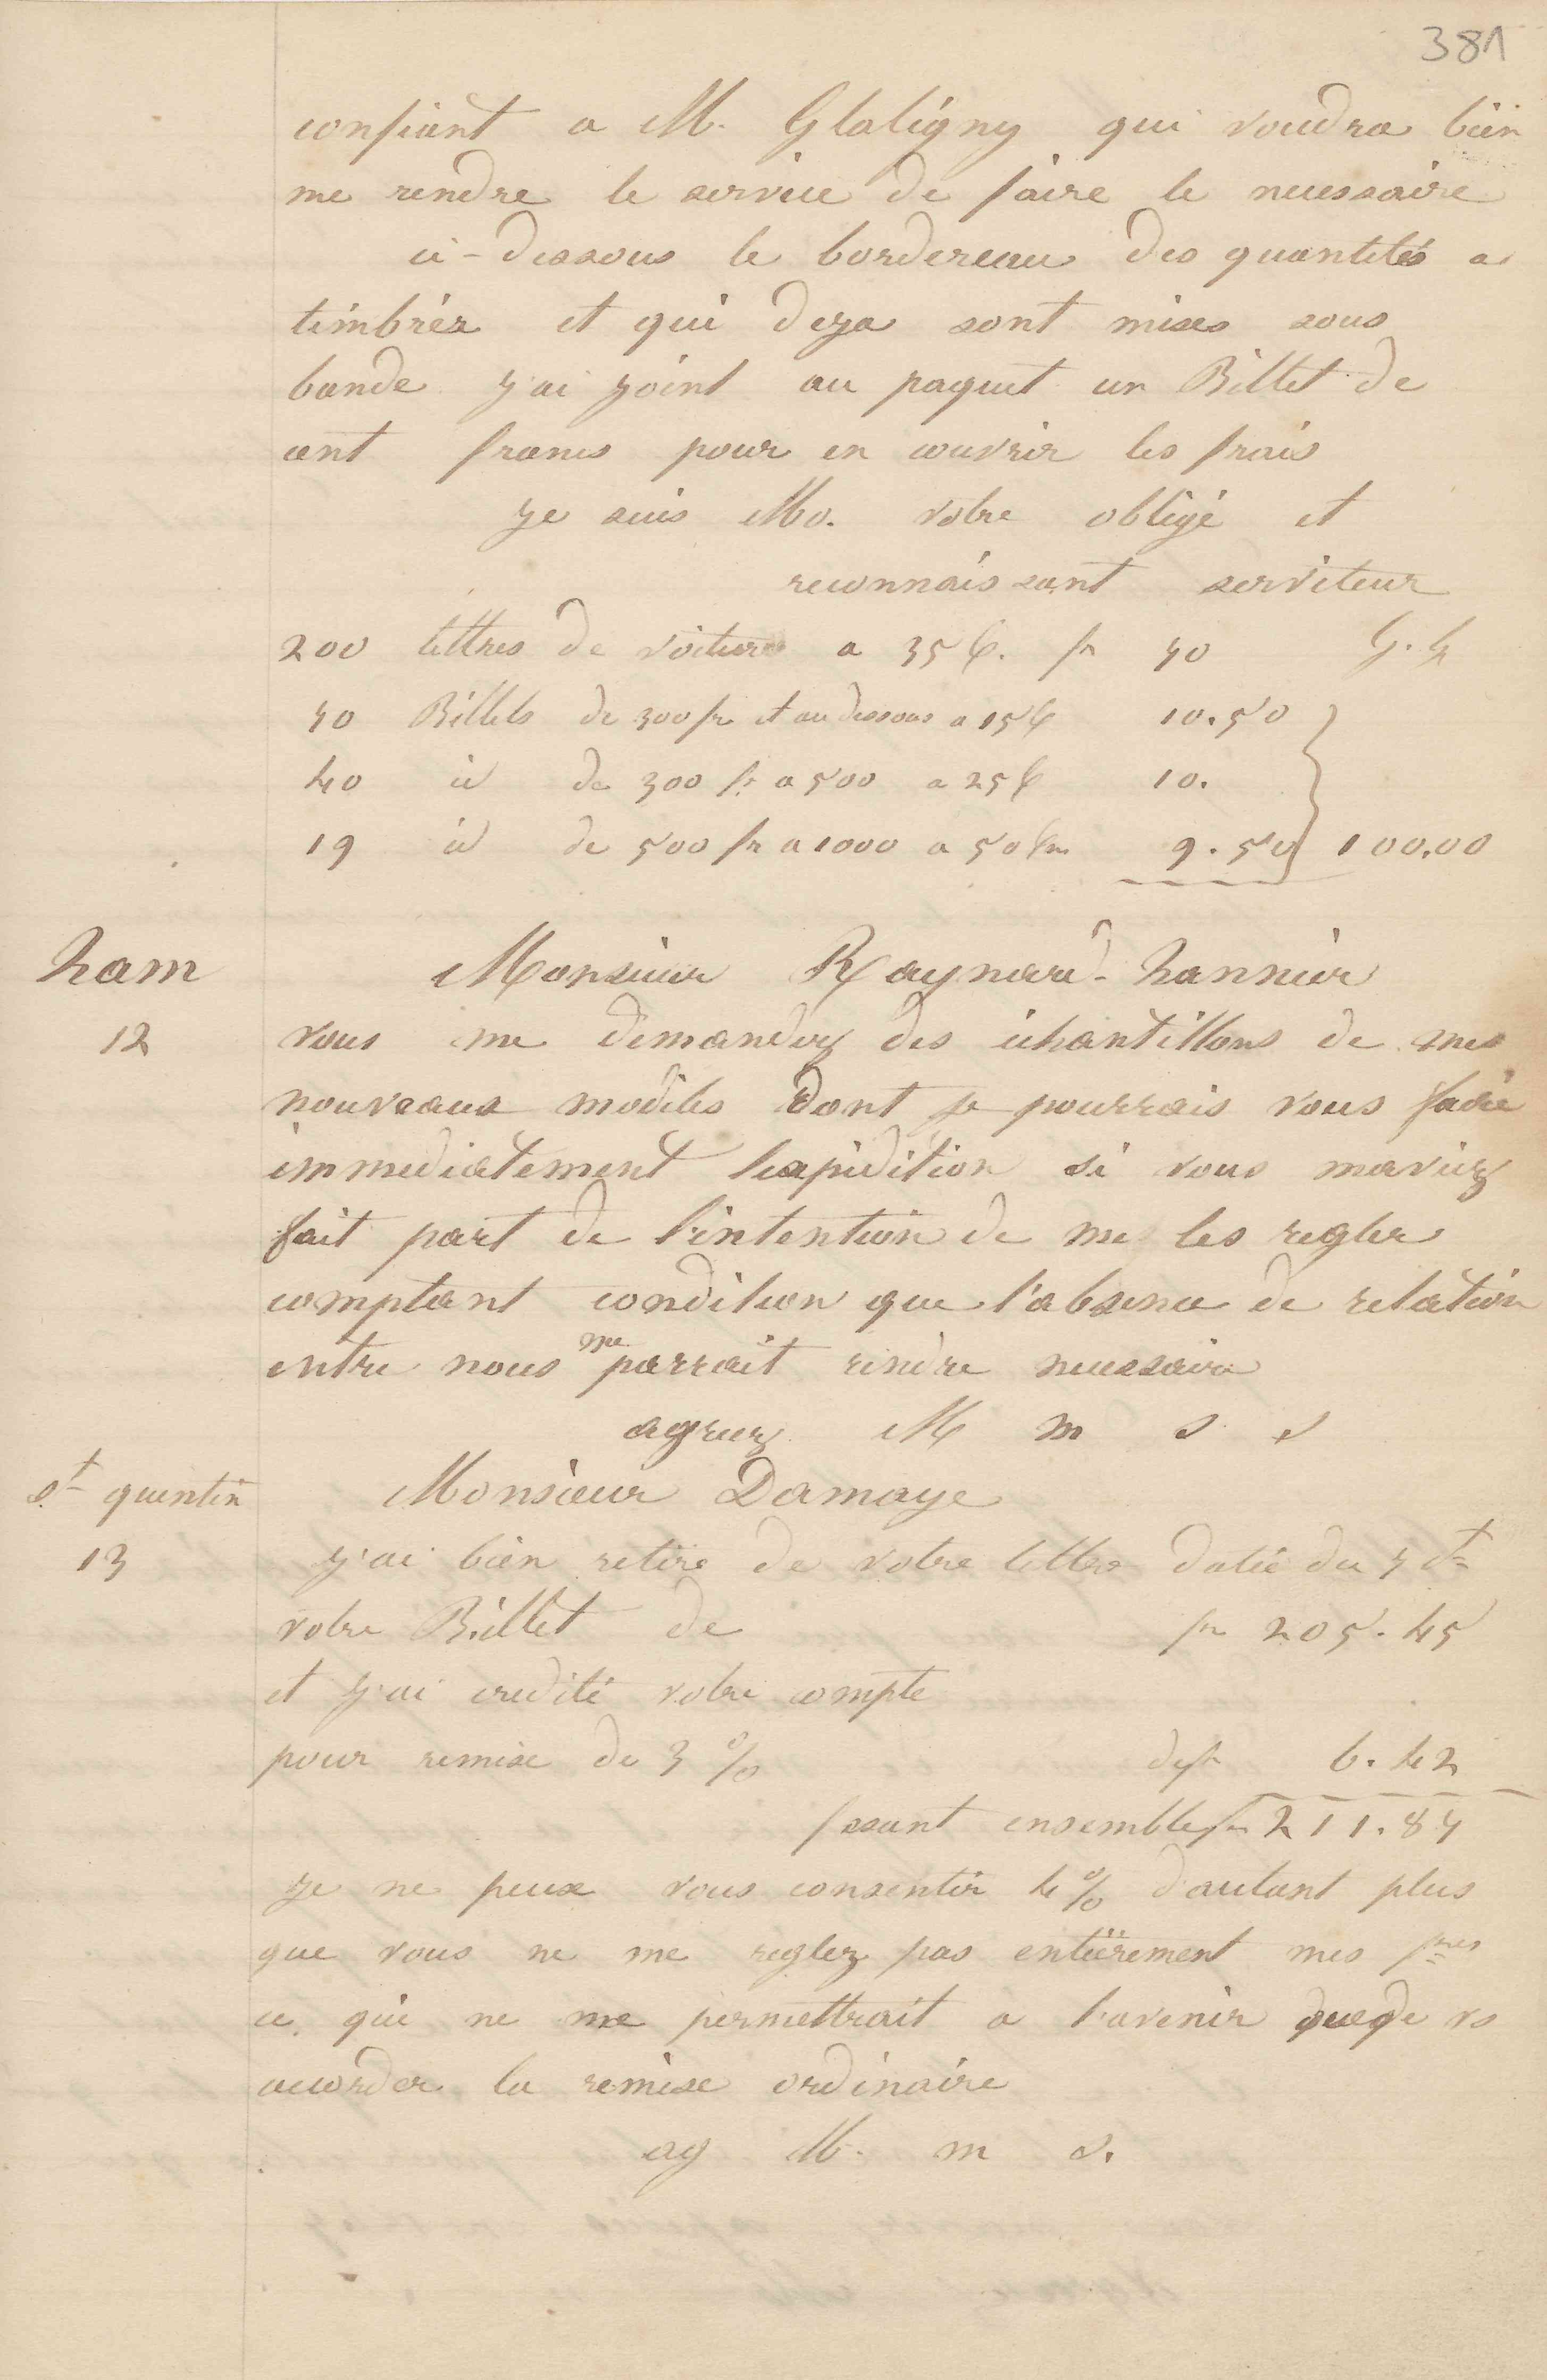 381
confiant a M. Glatigny qui voudra bien
me rendre le service de faire le necessaire
ci-dessous le bordereau des quantités a
timbrér et qui deja sont mises sous
bande j'ai joint au paquet un Billet de
cent francs pour en couvrir les frais
je suis Mo. votre obligé et
reconnaissant serviteur
200 lettres de voiture a 35 c. fr 70 G. G
70 Billets de 300 fr et au dessous a 15 c 10.50
40 id de 300 fr a 500 a 25 c 10.
19 id de 500 fr a 1000 a 50 cm 9.50 100.00
ham
Monsieur Raynard-hannier
12
vous me demandez des échantillons de mes
nouveaux modèles dont je pourrais vous faire
immediatement lexpidition si vous maviez
fait part de l'intention de me les regler
comptant condition que l'absence de relation
entre nous me parrait rendre necessaire
agreez M m s s
st quentin
Monsieur Damaye
13
j'ai bien retiré de votre lettre datée du 7 ct
votre Billet de fr 205.45
et j'ai credité votre compte
pour remise de 3 % de fr 6.42
fesant ensemble fr 211.87
je ne peux vous consentir 4 % d'autant plus
que vous ne me reglez pas entièrement mes fres
ce qui ne me permettrait a l'avenir que de vs
accorder la remise ordinaire
ag M. m s.